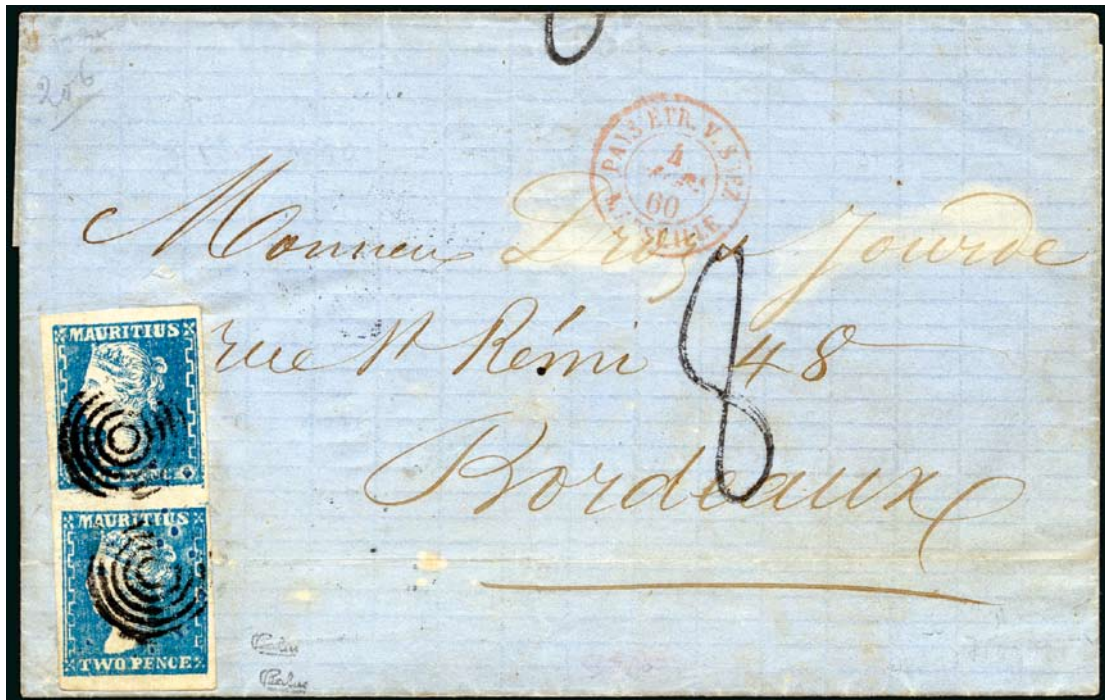 206
PAYS ETR. V. SUEZ
4
60
MARSEILLE
Monsieur Droz Jourde
rue St Rémi 48
8
Bordeaux
MAURITIUS
PENCE
MAURITIUS
TWO PENCE
Calves
Calves